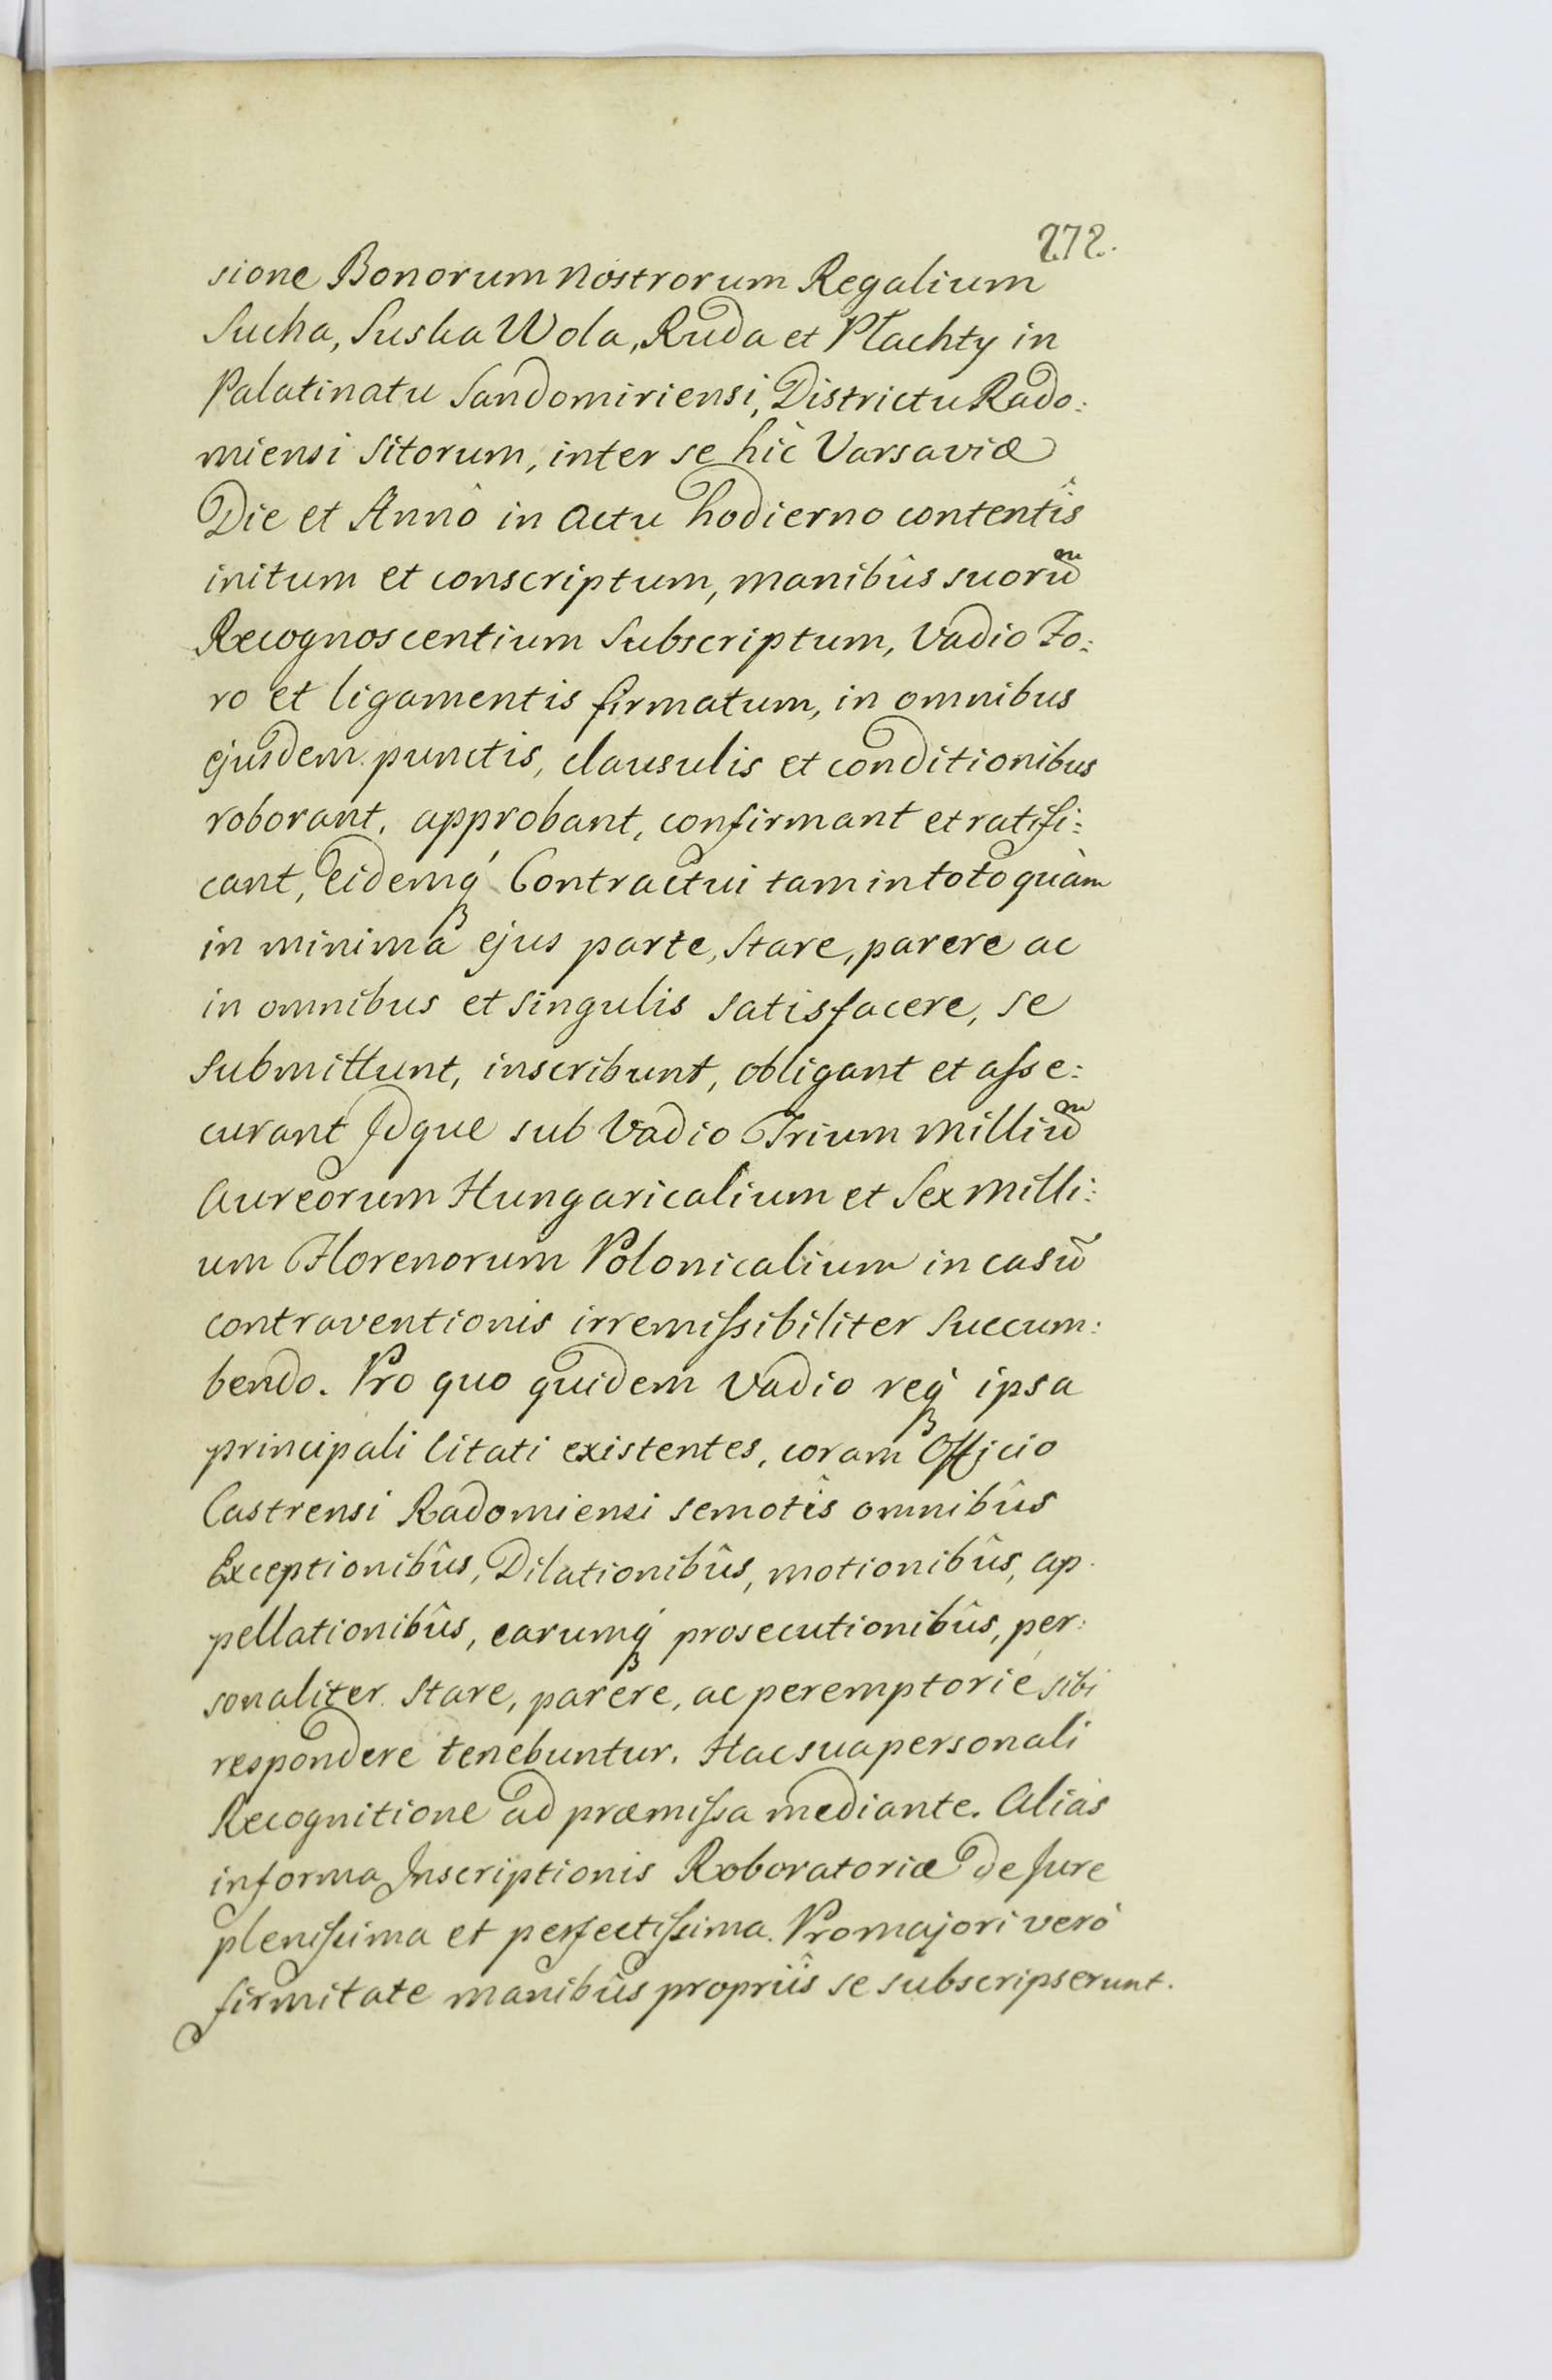 272.
sione Bonorum Nostrorum Regalium
Sucha, Suska Wola, Ruda et Płachty in
Palatinatu Sandomiriensi, Districtu Rado:
miensi Sitorum, inter se hic Varsaviæ
Die et Annô in Actu hodierno contentîs
initum et conscriptum, manibûs suorũm
Recognoscentium Subscriptum, Vadio Fo:
ro et ligamentis firmatum, in omnibus
ejusdem punctis, clausulis et conditionibus
roborant, approbant, confirmant et ratifi:
cant, Eidemq́ Contractui tam in toto quàm
in minima ejus parte, Stare, parere ac
in omnibus et Singulis Satisfacere, se
Submittunt, inscribunt, obligant et aſse:
curant Idque sub Vadio Trium Milliũm
Aureorum Hungaricalium et Sex Milli:
um Florenorum Polonicalium in casũ
contraventionis irremiſsibiliter Succum:
bendo. Pro quo quidem Vadio req́ ipsa
principali Citati existentes, coram Officio
Castrensi Radomiensi semotîs omnibûs
Exceptionibûs, Dilationibûs, motionibûs, ap
pellationibûs, earumq́ prosecutionibûs, per:
sonaliter Stare, parere, ac peremptorie sibi
respondere tenebuntur. Hac sua personali
Recognitione ad præmiſsa mediante. Aliàs
in forma Inscriptionis Roboratoriæ de Jure
pleniſsima et perfectiſsima. Pro majori verò
firmitate manibûs propriîs se subscripserunt.